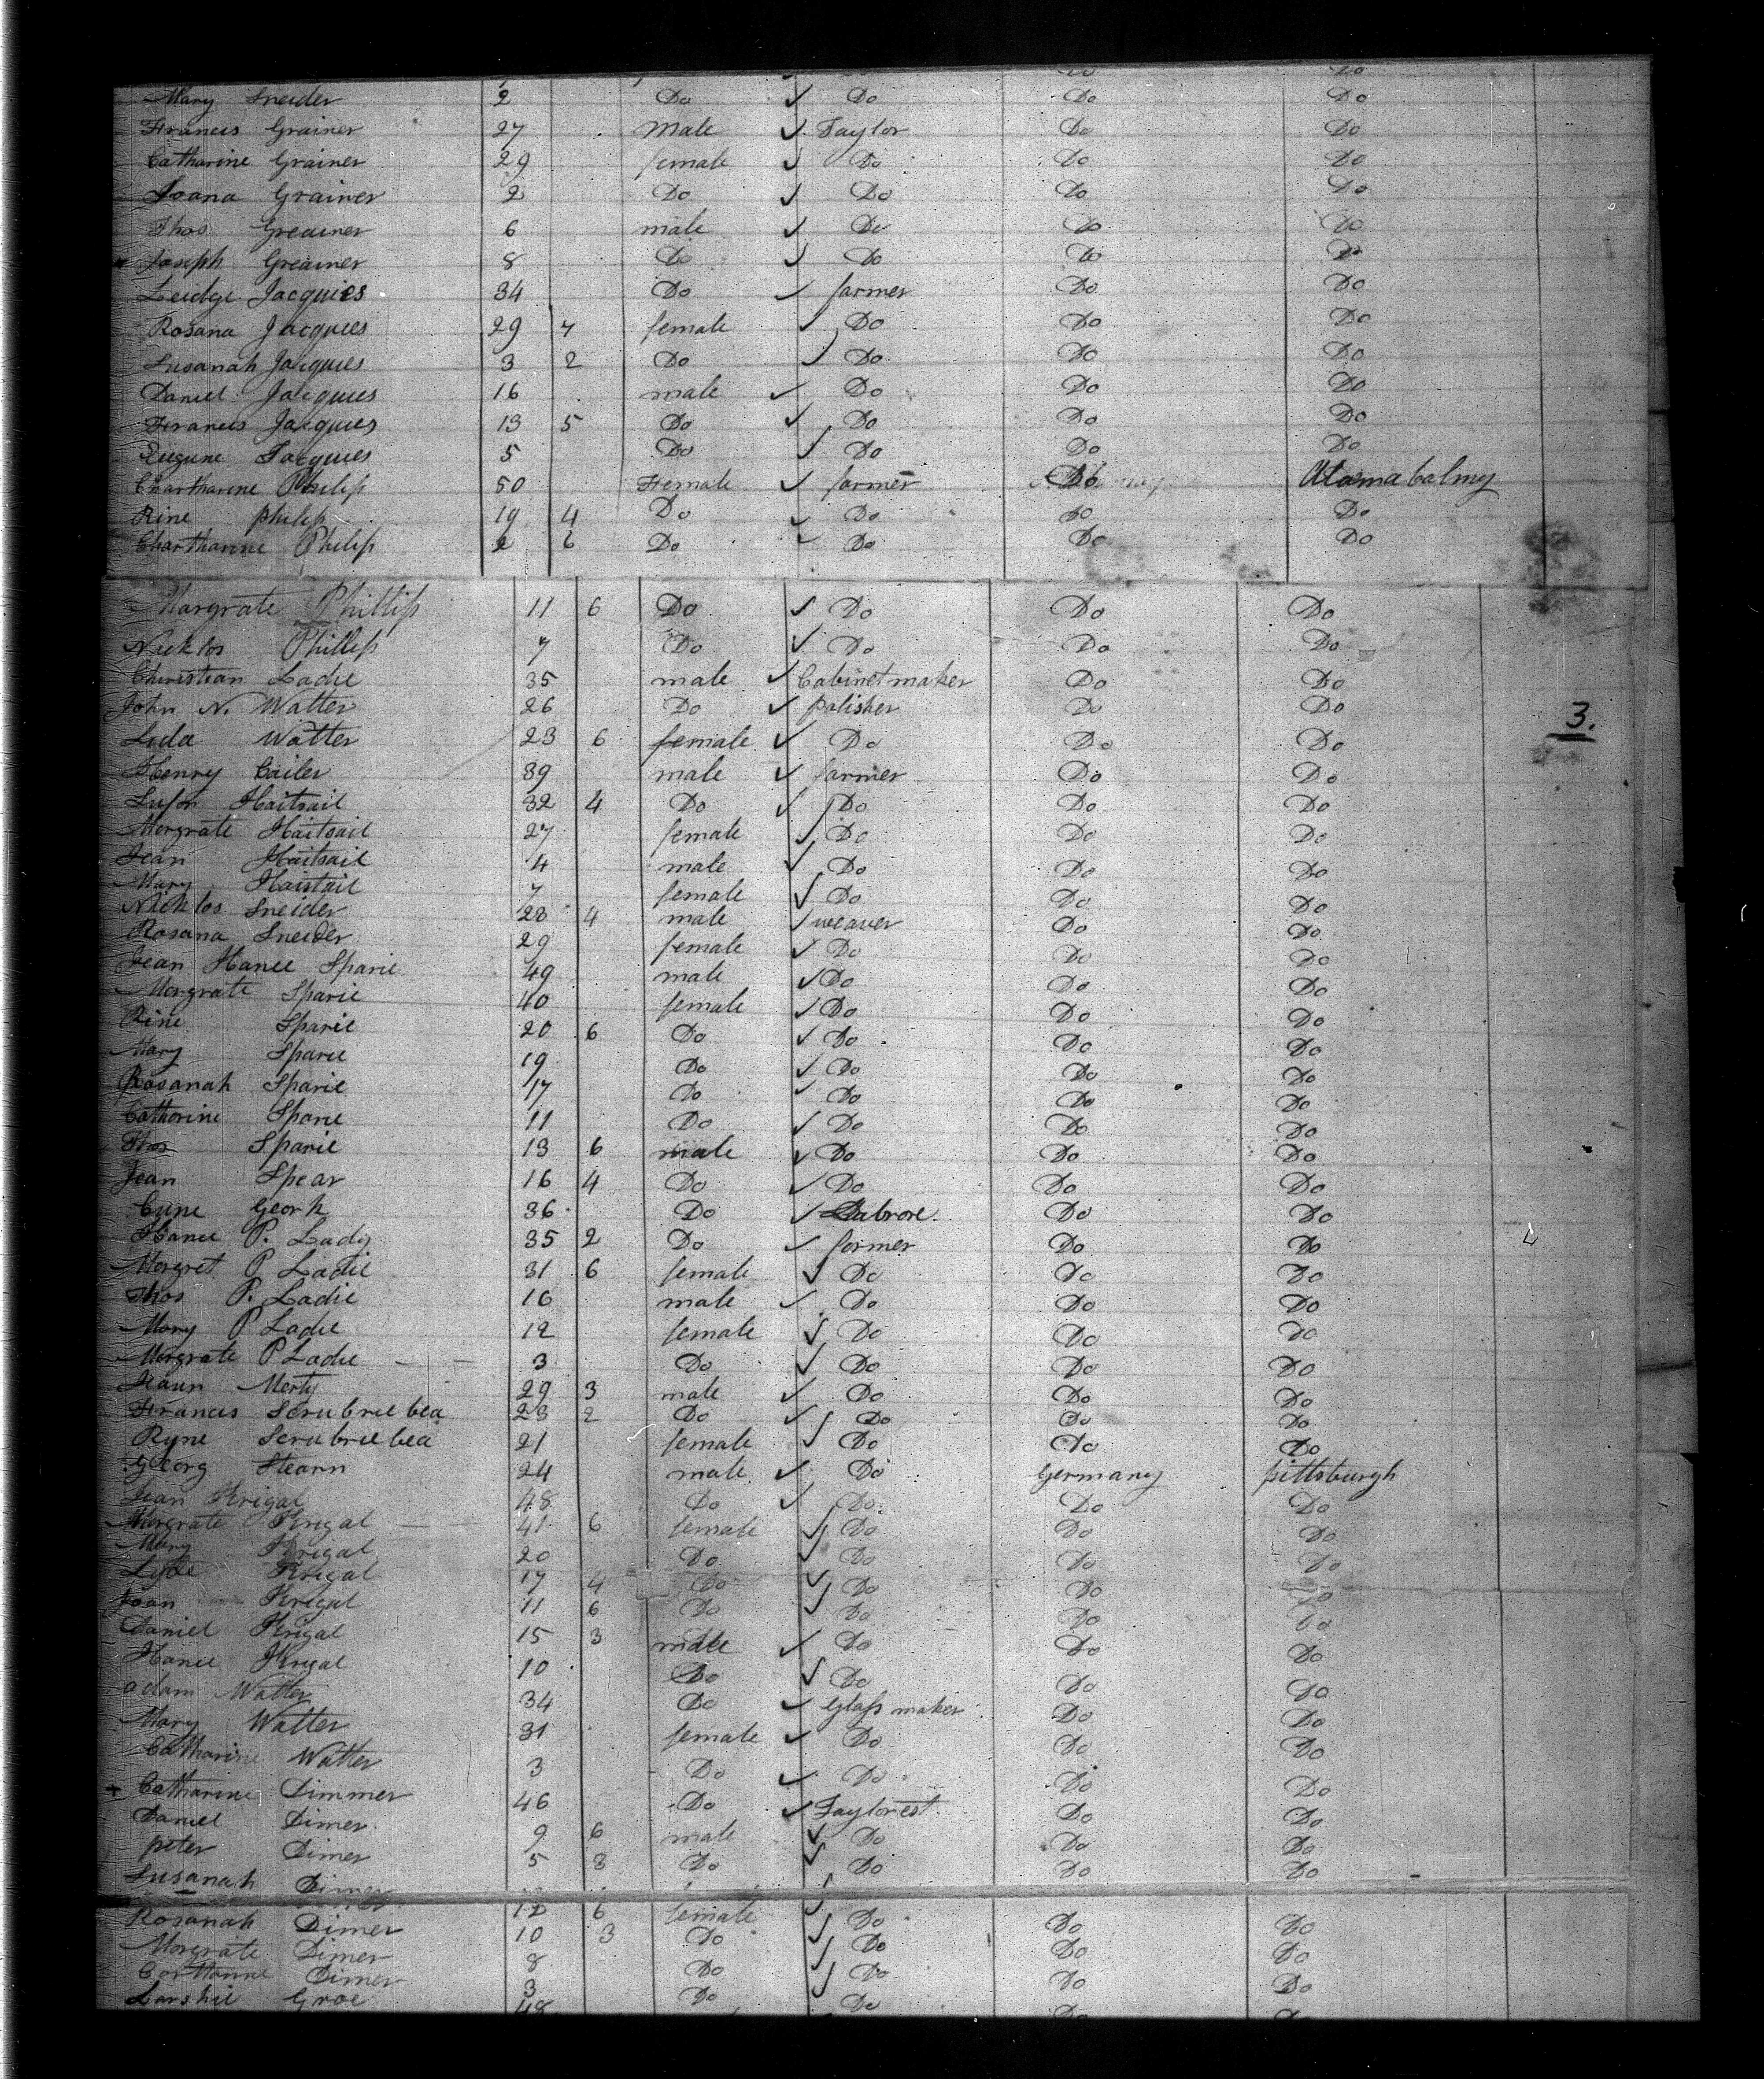 Mary Sneider 2 Do ✓ Do Do Do
Francis Grainer 27 Male ✓ Taylor Do Do
Catharine Grainer 29 female ✓ Do Do Do
Joana Grainer 2 Do ✓ Do Do Do
Thos Greainer 6 male ✓ Do Do Do
Joseph Greainer 8 Do ✓ Do Do Do
Leidge Jacquies 34 Do ✓ farmer Do Do
Rosana Jacquies 29 7 female ✓ Do Do Do
Susanah Jacquies 3 2 Do ✓ Do Do Do
Daniel Jacquies 16 male ✓ Do Do Do
Francis Jacquies 13 5 Do ✓ Do Do Do
Jacquies 5 Do ✓ Do Do Do
Chartharine Philip 50 Female ✓ farmer Do
Rine philip 19 4 Do ✓ Do Do Do
Chartharine Philip 2 6 Do ✓ Do Do Do
Margrate Phillip 11 6 Do ✓ Do Do Do
Nicklos Phillip 7 Do ✓ Do Do Do
Christian Ladie 35 male ✓ Cabinet maker Do Do
John N. Walter 26 Do ✓ polisher Do Do
Lida Walter 23 6 female ✓ Do Do Do
Henry Cailer 39 male ✓ farmer Do Do
Haitsail 32 4 Do ✓ Do Do Do
Morgrate Haitsail 27 female ✓ Do Do Do
Jean Haitsail 4 male ✓ Do Do Do
Mary Haistail 7 female ✓ Do Do Do
Nicklos Sneider 28 4 male ✓ weaver Do Do
Rosana Sneider 29 female ✓ Do Do Do
Jean Hance Sparie 49 male ✓ Do Do Do
Morgrate Sparie 40 female ✓ Do Do Do
Rine Sparie 20 6 Do ✓ Do Do Do
Mary Sparie 19 Do ✓ Do Do Do
Rosanah Sparie 17 Do ✓ Do Do Do
Catharine Sparie 11 Do ✓ Do Do Do
Thos Sparie 13 6 male ✓ Do Do Do
Jean Spear 16 4 Do ✓ Do Do Do
Cune Geork 36 Do ✓ Labrore Do Do
Hance P. Lady 35 2 Do ✓ farmer Do Do
Morgret P Ladie 31 6 female ✓ Do Do Do
Thos P. Ladie 16 male ✓ Do Do Do
Mary P Ladie 12 female ✓ Do Do Do
Morgrate P Ladie 3 Do ✓ Do Do Do
Haun Morty 29 3 male ✓ Do Do Do
Francis Scrubriebea 23 2 Do ✓ Do Do Do
Ryne Scrubriebea 21 female ✓ Do Do Do
Georg Hearn 24 male ✓ Do Germany pittsburgh
Jean Krigal 48 Do ✓ Do Do Do
Morgrate Krigal 41 6 female ✓ Do Do Do
Mary Krigal 20 Do ✓ Do Do Do
Lyde Krigal 17 4 Do ✓ Do Do Do
Joan Krigal 11 6 Do ✓ Do Do Do
Daniel Krigal 15 3 male ✓ Do Do Do
Hance Krigal 10 Do ✓ Do Do Do
adam Walter 34 Do ✓ Glass maker Do Do
Mary Walter 31 female ✓ Do Do Do
Catharine Walter 3 Do ✓ Do Do Do
Catharine Dimmer 46 Do ✓ Taylorest Do Do
Daniel Dimer 9 6 male ✓ Do Do Do
peter Dimer 5 8 Do ✓ Do Do Do
Susanah Dimer 12 6 female ✓ Do Do Do
Rosanah Dimer 10 3 Do ✓ Do Do Do
Morgrate Dimer 8 Do ✓ Do Do Do
Dimer 3 Do Do
Groe 48 Do Do
3.